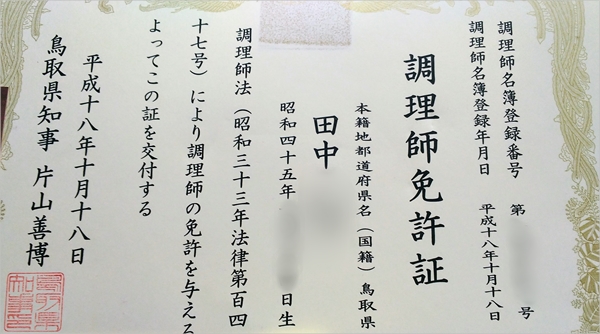 調理師名簿登録番号 第 号
調理師名簿登録年月日 平成十八年十月十八日
調理師免許証
本籍地都道府県名（国籍）鳥取県
田中
昭和四十五年 日生
調理師法（昭和三十三年法律第百四
十七号）により調理師の免許を与える
よってこの証を交付する
平成十八年十月十八日
鳥取県知事 片山善博